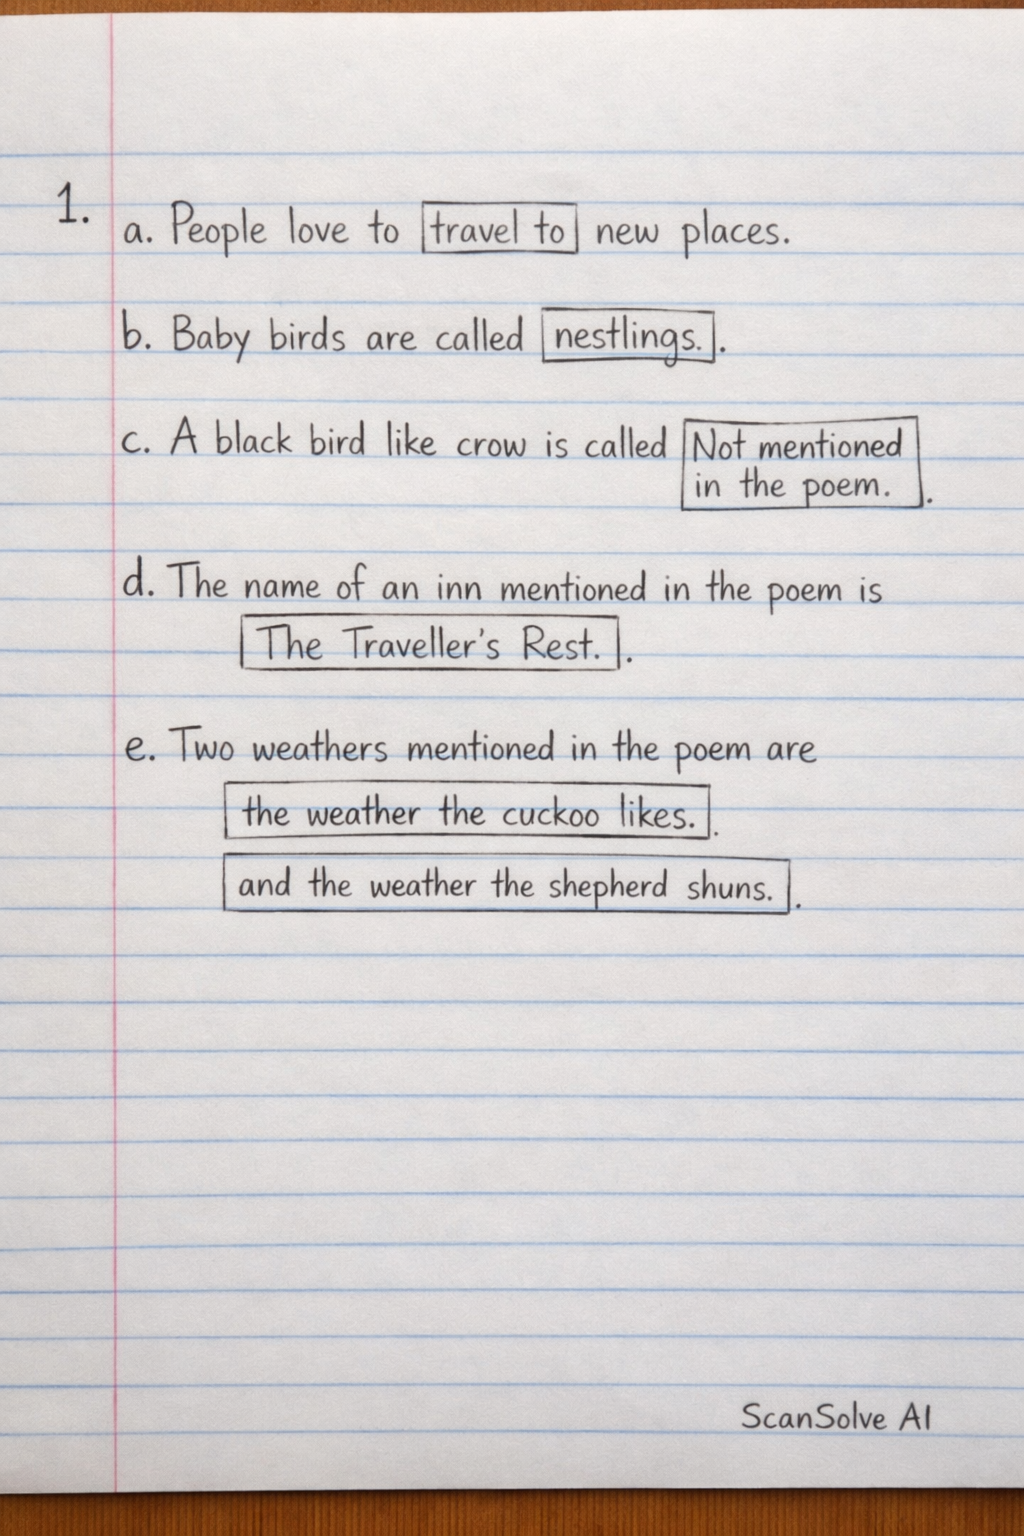 1.
a. People love to travel to new places.
b. Baby birds are called nestlings..
c. A black bird like crow is called Not mentioned
in the poem. .
d. The name of an inn mentioned in the poem is
The Traveller's Rest. .
e. Two weathers mentioned in the poem are
the weather the cuckoo likes. .
and the weather the shepherd shuns. .
ScanSolve AI